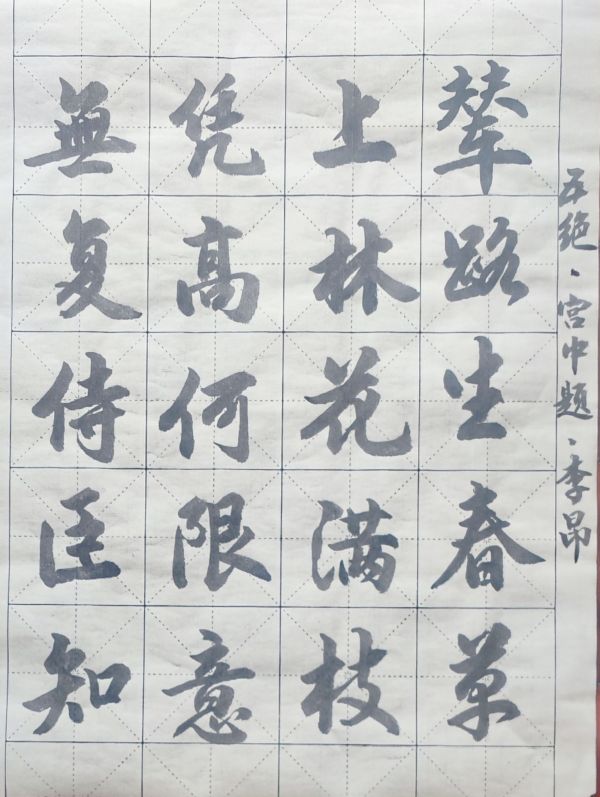 五绝·宫中题·李昂
辇路生春草
上林花满枝
凭高何限意
無复侍臣知